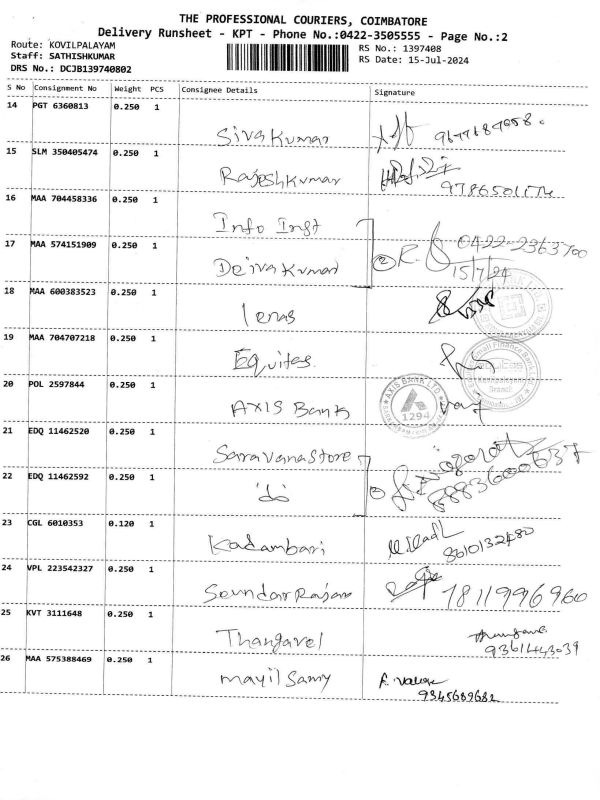 THE PROFESSIONAL COURIERS, COIMBATORE
Delivery Runsheet - KPT - Phone No.:0422-3505555 - Page No.:2
Route: KOVILPALAYAM
RS No.: 1397408
Staff: SATHISHKUMAR
RS Date: 15-Jul-2024
DRS No.: DCJB139740802
S No Consignment No Weight PCS Consignee Details Signature
14 PGT 6360813 0.250 1
Sivakumar
15 SLM 350405474 0.250 1
Rajeshkumar
16 MAA 704458336 0.250 1
Info Inst
17 MAA 574151909 0.250 1
Deivakumar ② R. 0422-2363700
15/7/24
18 MAA 600383523 0.250 1
19 MAA 704707218 0.250 1
Equitas
20 POL 2597844 0.250 1
Axis Bank AXIS BANK LTD 1294
21 EDQ 11462520 0.250 1
Saravanastore
22 EDQ 11462592 0.250 1
do ② 8883600637
23 CGL 6010353 0.120 1
Kadambari 8610132480
24 VPL 223542327 0.250 1
Soundar Rajan 7811996960
25 KVT 3111648 0.250 1
Thangavel 9361443039
26 MAA 575388469 0.250 1
Mayil Samy 9345689682